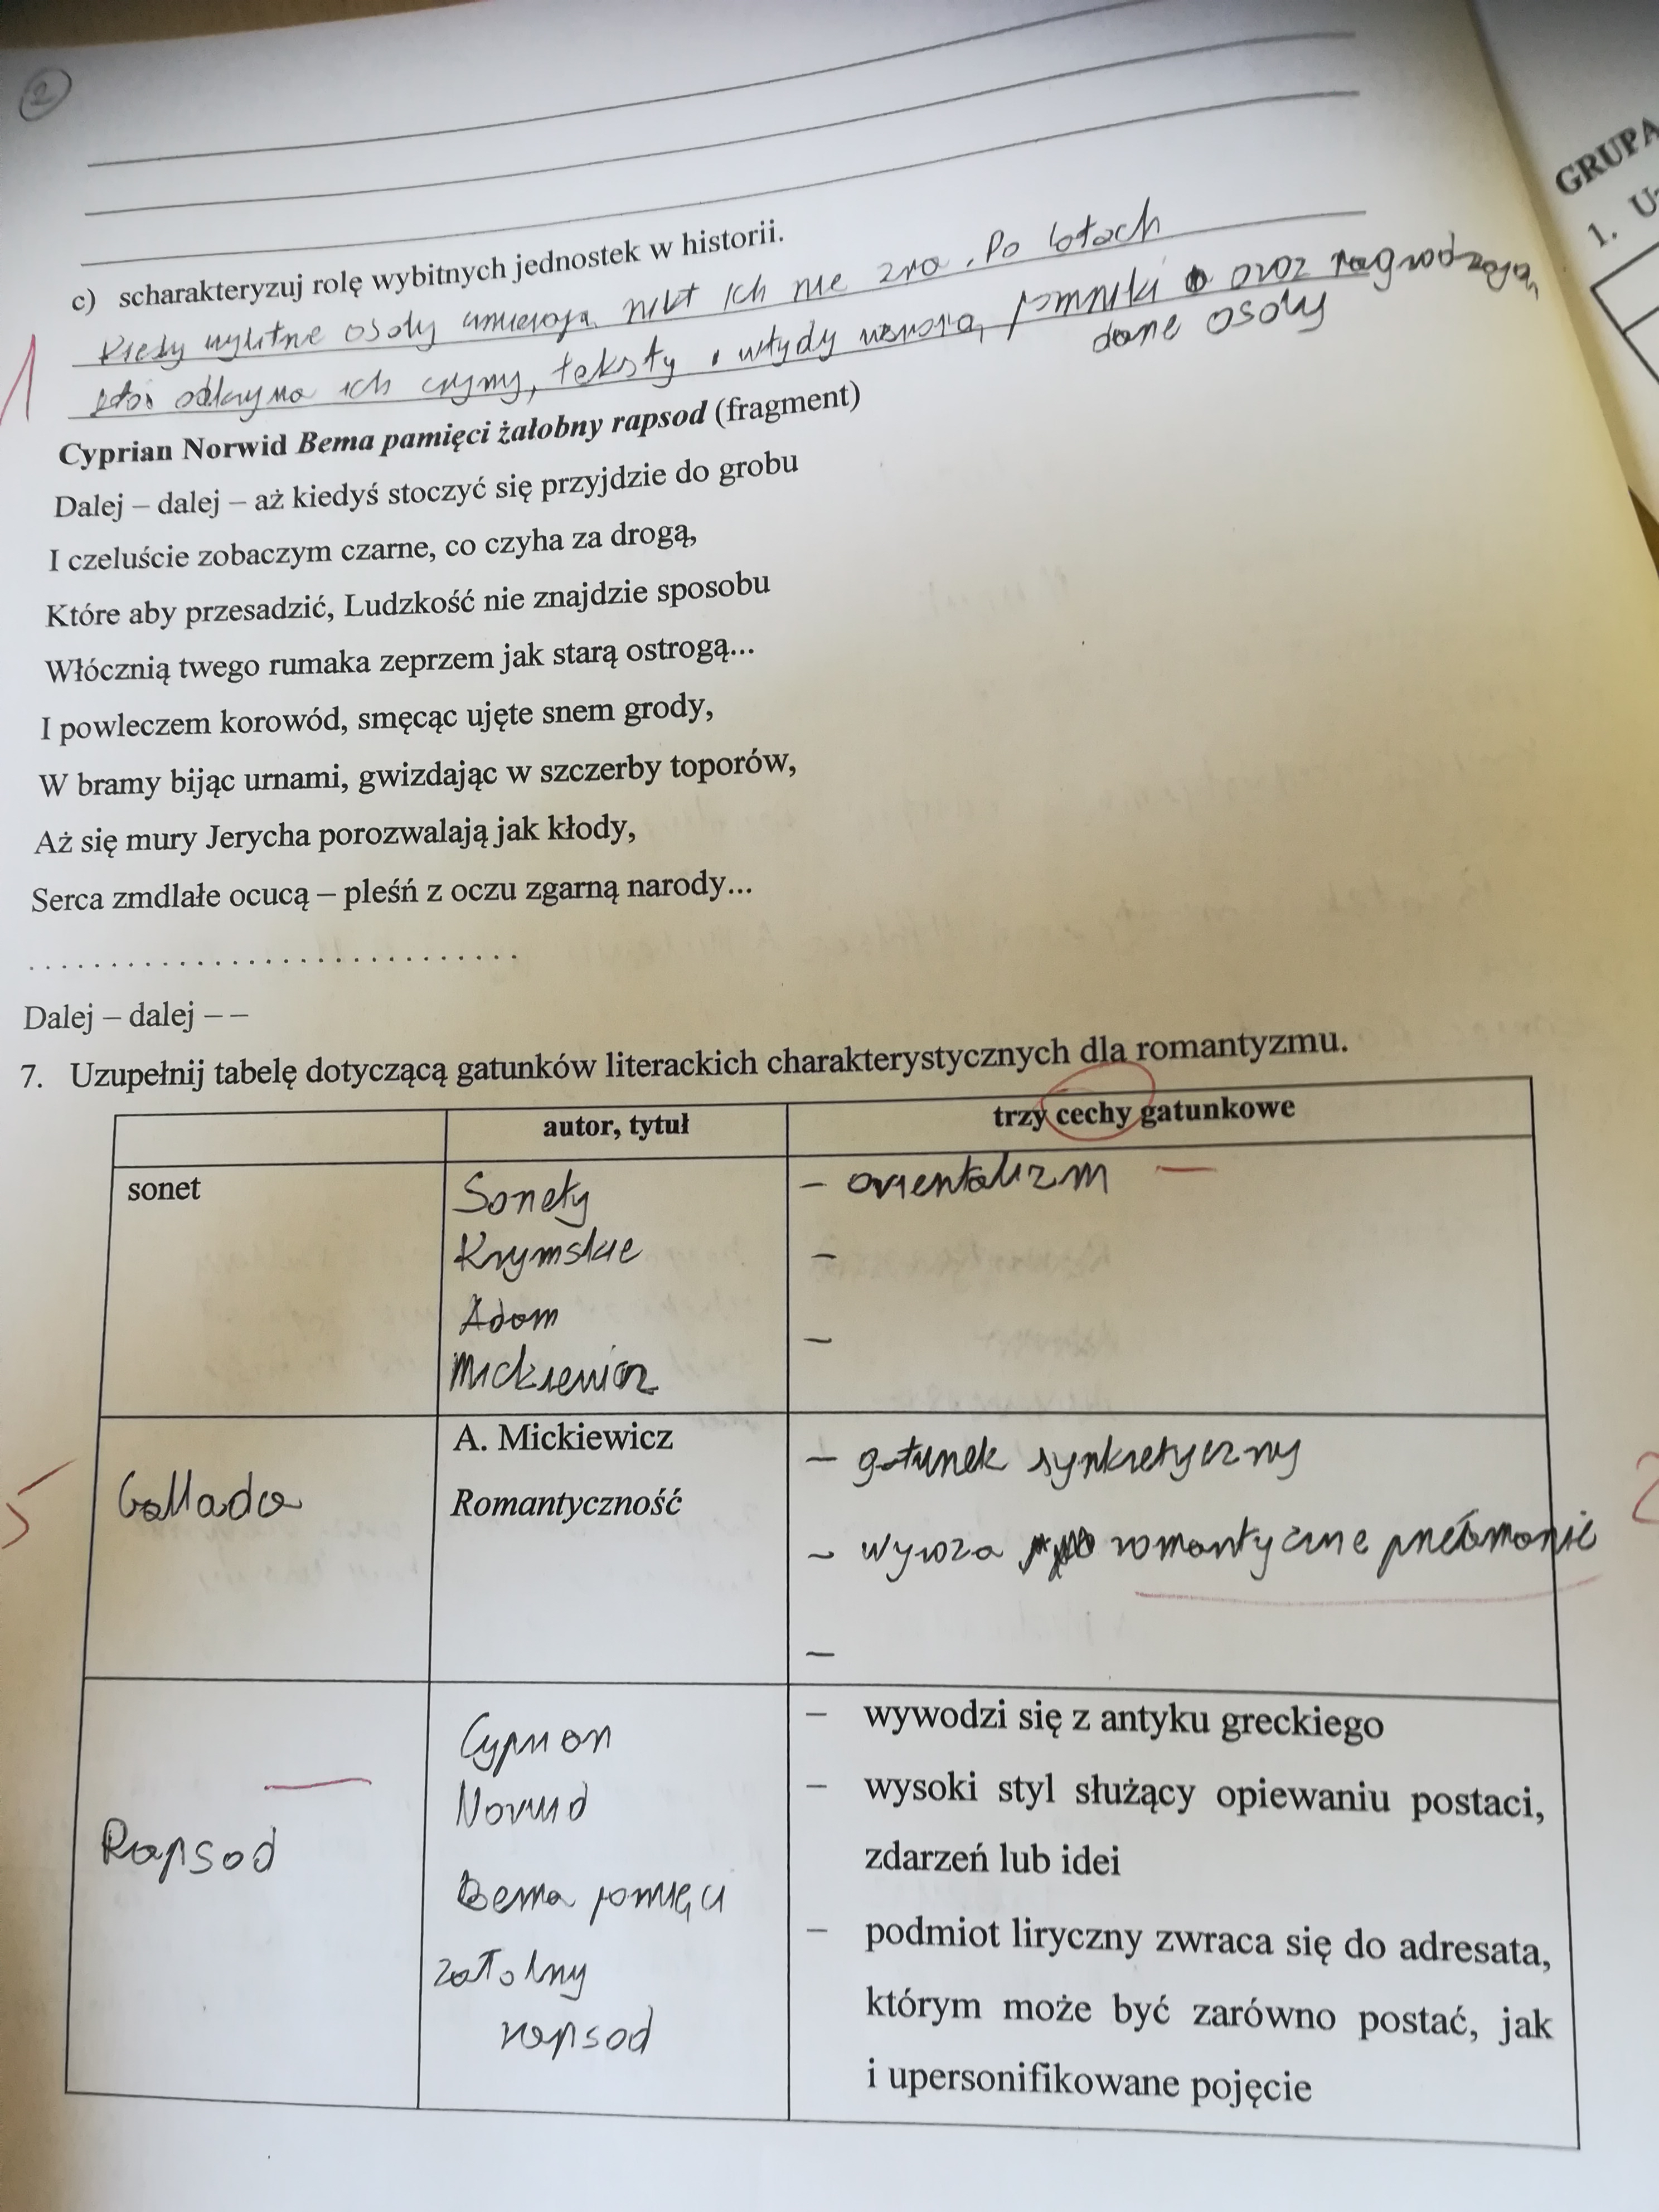 2
GRUPA
1. U
c) scharakteryzuj rolę wybitnych jednostek w historii.
Kiedy wybitne osoby umierają nikt ich nie zna. Po latach
ktoś odkrywa ich czyny, teksty i wtydy wznoszą pomniki oraz nagrodzają
dane osoby
1
Cyprian Norwid Bema pamięci żałobny rapsod (fragment)
Dalej – dalej – aż kiedyś stoczyć się przyjdzie do grobu
I czeluście zobaczym czarne, co czyha za drogą,
Które aby przesadzić, Ludzkość nie znajdzie sposobu
Włócznią twego rumaka zeprzem jak starą ostrogą...
I powleczem korowód, smęcąc ujęte snem grody,
W bramy bijąc urnami, gwizdając w szczerby toporów,
Aż się mury Jerycha porozwalają jak kłody,
Serca zmdlałe ocucą – pleśń z oczu zgarną narody...
. . . . . . . . . . . . . . . . . . . . . . . . . . . . . .
Dalej – dalej – –
7. Uzupełnij tabelę dotyczącą gatunków literackich charakterystycznych dla romantyzmu.
autor, tytuł
trzy cechy gatunkowe
sonet
Sonety
Krymskie
Adam
Mickiewicz
– orientalizm
–
–
5
ballada
A. Mickiewicz
Romantyczność
– gatunek synkretyczny
– wyraża romantyczne
–
2
Rapsod
Cyprian
Norwid
Bema pamięci
żałobny
rapsod
– wywodzi się z antyku greckiego
– wysoki styl służący opiewaniu postaci,
zdarzeń lub idei
– podmiot liryczny zwraca się do adresata,
którym może być zarówno postać, jak
i upersonifikowane pojęcie